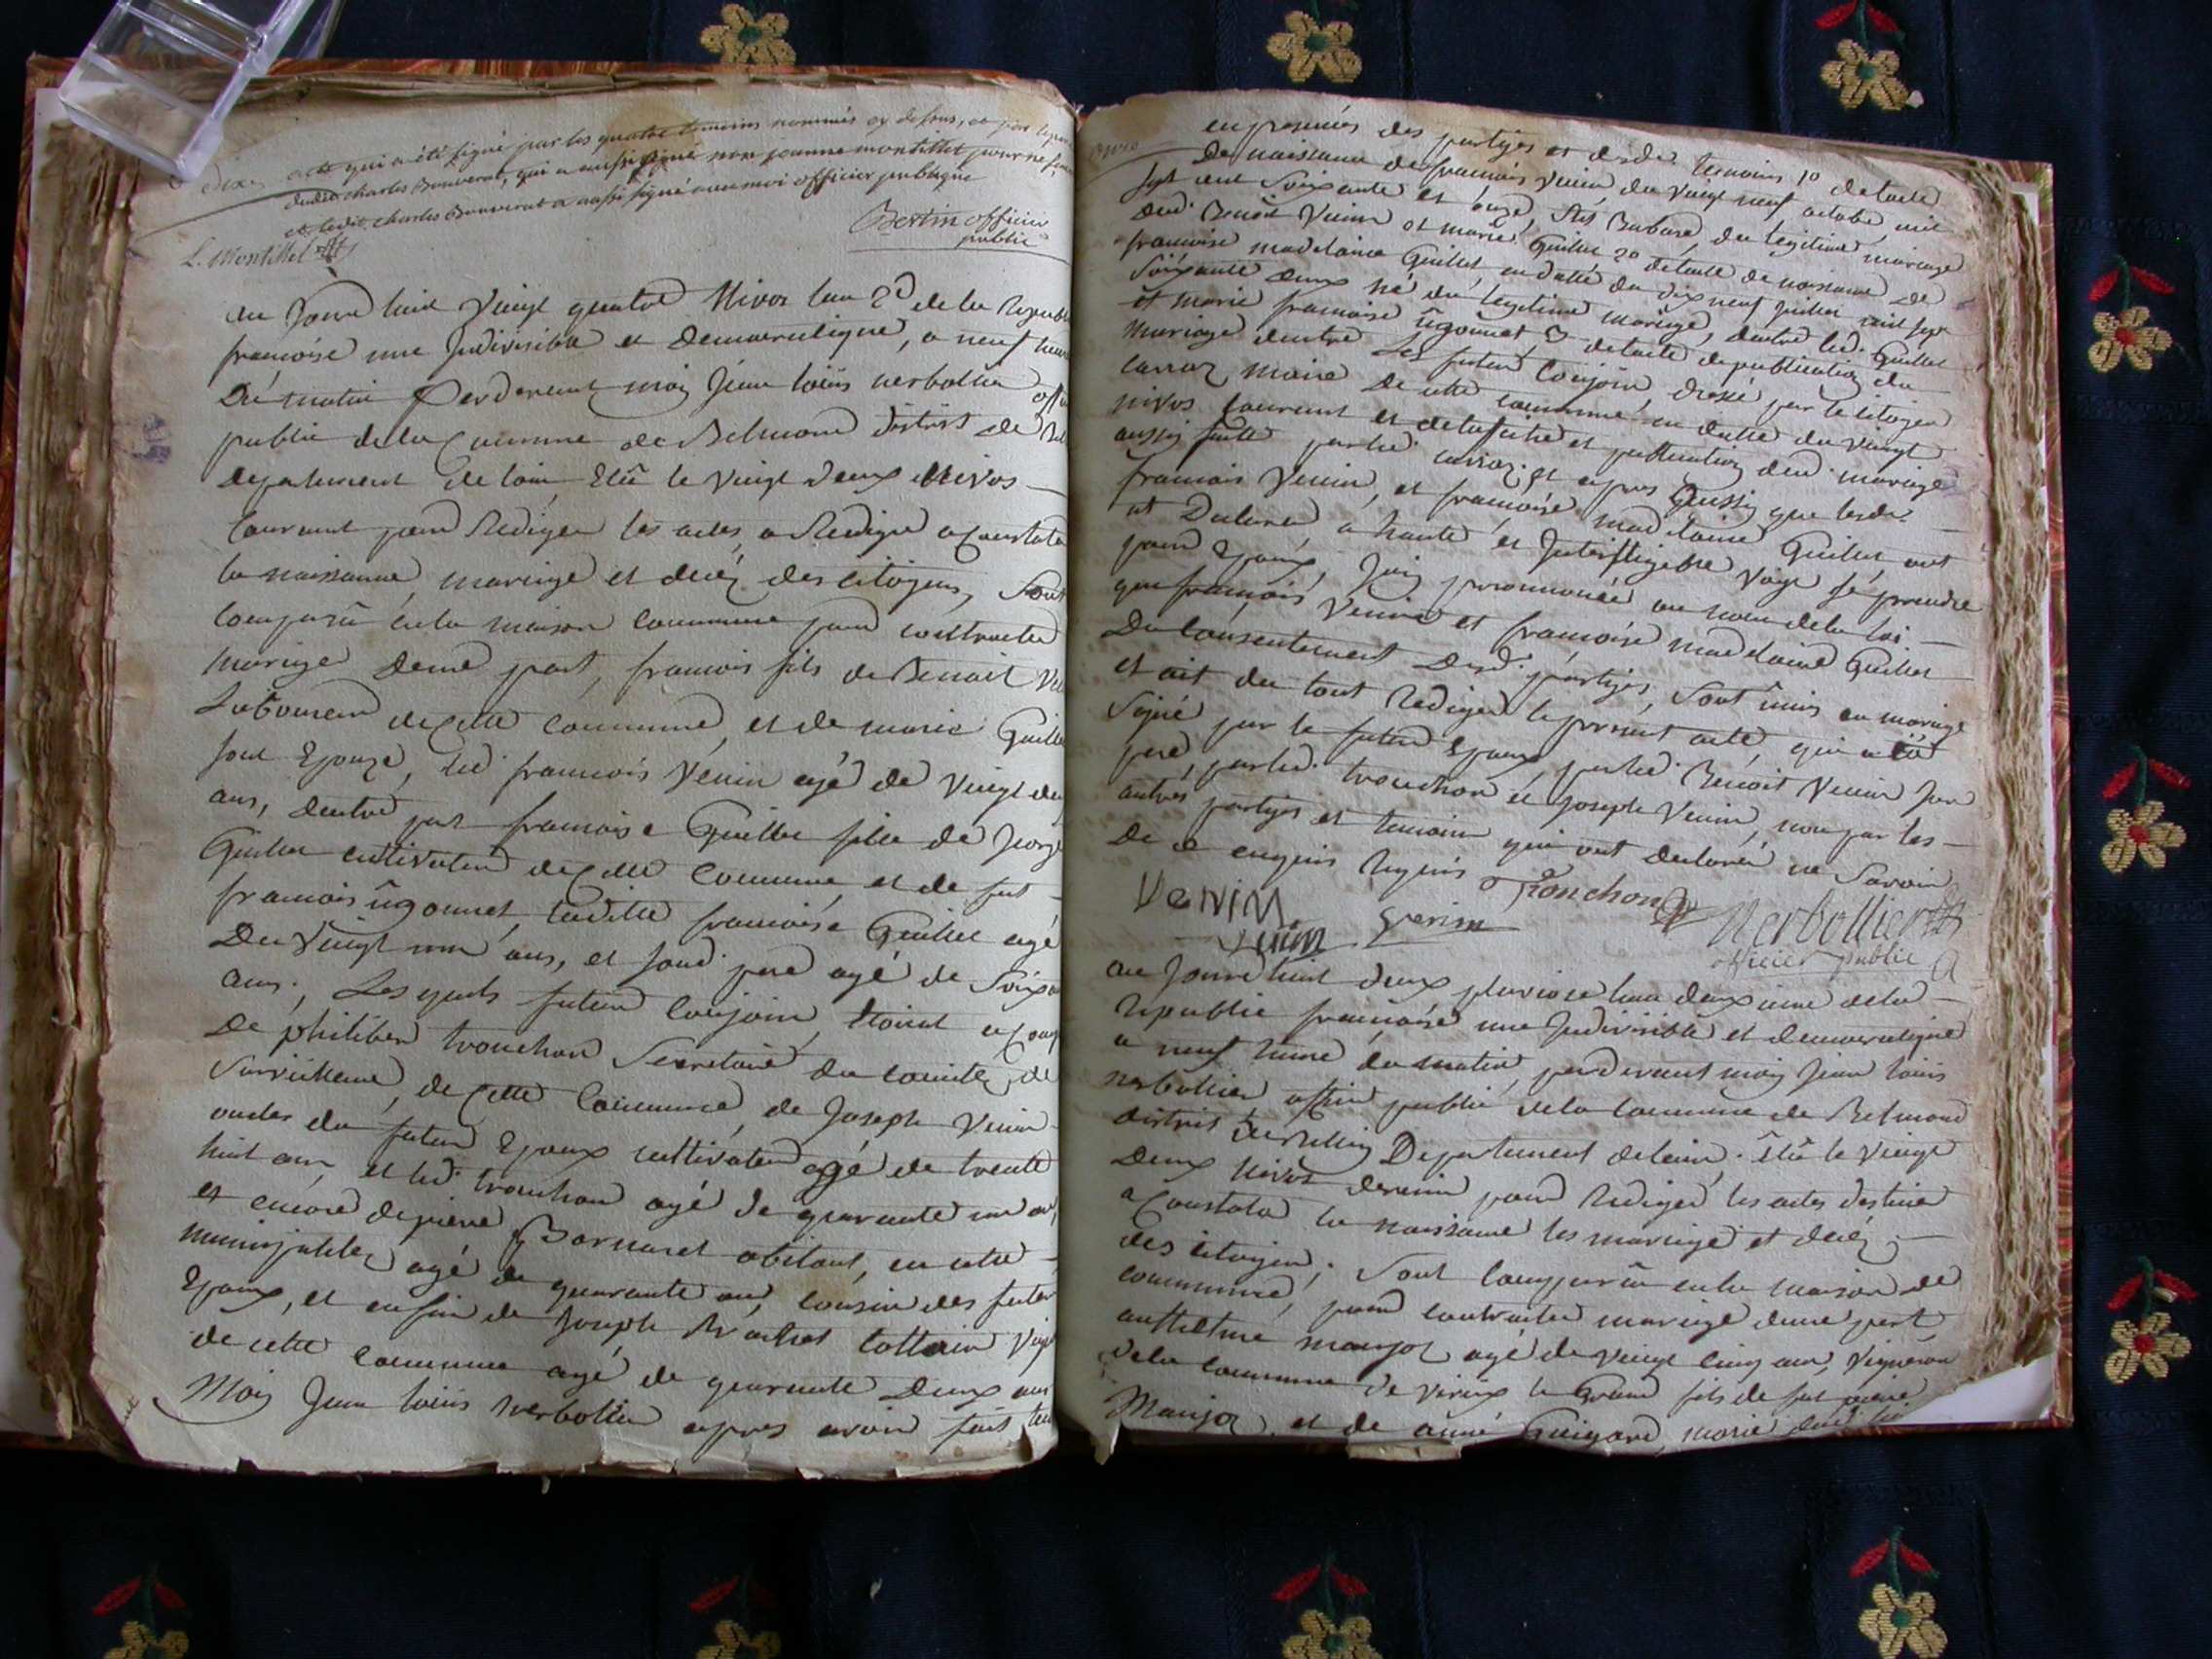 dix
acte qui a été signé par les quatre temoins nommés cy dessus, et par le
dudit charles Bouverat, qui a aussi signé non jeanne montillet pour ne
et ledit charles Bouverat a aussi signé avec moi officier publique
Bertin officier
public
L. Montillet
au Jourd huit Vingt quatre Nivos lan 2d de la Republi
francoise une Indivisible et Democratique, a neuf heure
Du matin Perdevant moy Jean loüis nerbollier offi
public de la Commune de Belmond district de Bel
departement de lain Elû le vingt deux Nivos
Courrant pour Rediger les actes, a Rediger a Constate
la naissance, mariage et decéz des citoyens, Sont
Comparû en la maison Commune pour contracter
Mariage dune part, francois fils de Benoit Ve
Laboureur de Cette Commune, et de marie Guillet
son Epouze, led. francois Venin agé de Vingt deux
ans, dautre part francoise Guillet fille de Jorge
Guillet cultivateur de Cette Commune et de fut
francois ûgonnet, laditte francoise Guillet agé
De Vingt un ans, et soud. pere agé de Soixan
ans. Lesquels futur Conjoin, Etoint acomp
De philiber tronchon Secretaire du comitéz de
Surveillance, de Cette Commune, de Joseph Venin
oncles du futur Epoux cultivateur agé de trente
huit ans et led. tronchon agé de quarante un ans
et encore de pierre Bornaret abitant, en cette
municipalitéz agé de quarante ans, cousin des futur
Epoux, et en fin de Joseph Brachet
de cette Commune agé de quarante Deux ans
Moy Jean loüis Nerbollier apres avoir fait
en presences des partijes et desd. temoins 10 de lacte
De naissance de francois Venin du vingt neuf octobre mil
sept cent Soixante et onze, fils du legitime mariage
dud. Benoit Venin et marie Guillet 20 de lacte de naissance de
francoise madelaine Guillet en datte du dix neuf Juillet mil sept
Soixante Deux né du legitime mariage, dentre led. Guillet
et marie francoise ûgonnet 3 de lacte de publication du
mariage dentre Les futur Conjoin, dressé par le citoyen
carraz maire De cette commune en datte du vingt
nivos Courrant et de lafiche et publication dud. mariage
aussy faitte par led. carraz, et apres aussy que lesd.
francois Venin, et francoise madelaine Guillet ont
et Declaré a haute et Inteilligible Voye se prendre
pour Epoux, Jay prononcé au nom de la loi
que francois Venin et francoise madelaine Guillet
Du Consentement desd. partijes, Sont ûnis en mariage
et ait du tout Redigé le present acte, qui a été
Signé par le futur Epoux, par led. Benoit Venin son
pere, par led. tronchon et Joseph Venin, non par les
autres partijes et temoins qui ont declaré ne Savoir
De ce enquis Requis
Tronchon
Venin
Nerbollier
Venin
officier public
au Jourd huit deux pluviose lan deuxieme de la
Republic francoise une Indivisible et democratique
a neuf heure du matin, perdevant moy Jean loüis
nerbollier officier public de la Commune de Belmond
district de Belley Departement de lain. Elû le vingt
Deux Nivos dernier pour Rediger les actes destiné
a Constater la naissance les mariage et decéz
des citoyens, Sont Comparû en la maison de
commune, pour contracter mariage dune part,
anthelme manjoz agé de vingt cinq ans, vigneron
de la commune de virieux le Grand fils de fut pierre
Manjoz, et de anne Guigard, marié